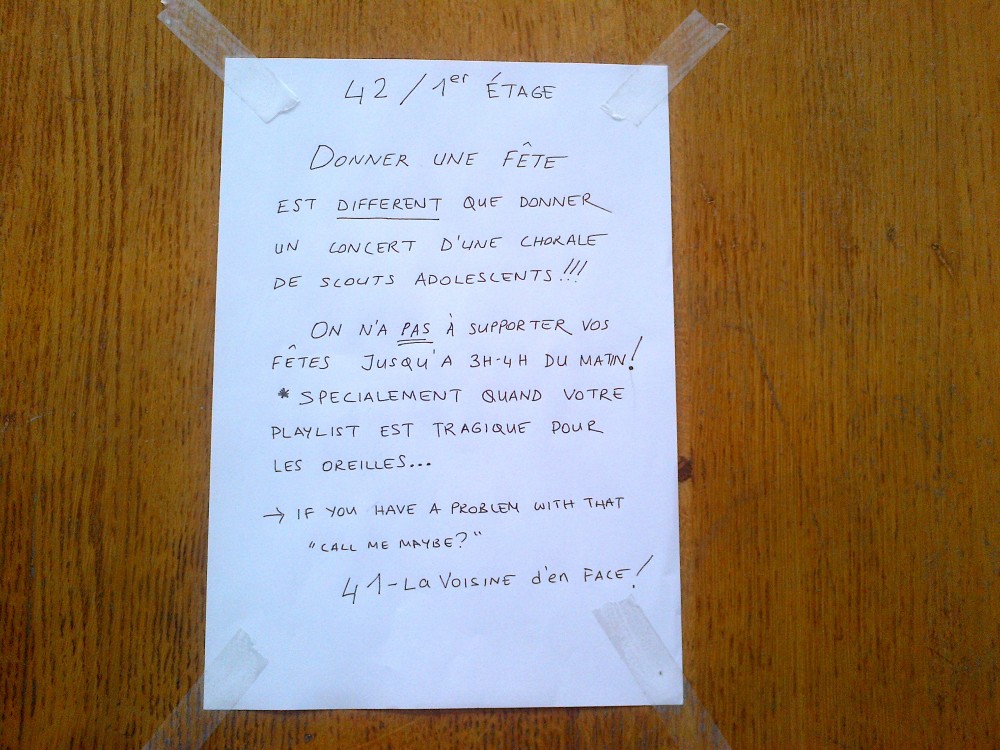 42 / 1er ÉTAGE
DONNER UNE FÊTE
EST DIFFERENT QUE DONNER
UN CONCERT D'UNE CHORALE
DE SCOUTS ADOLESCENTS!!!
ON N'A PAS À SUPPORTER VOS
FÊTES JUSQU'A 3H-4H DU MATIN!
* SPECIALEMENT QUAND VOTRE
PLAYLIST EST TRAGIQUE POUR
LES OREILLES...
→ IF YOU HAVE A PROBLEM WITH THAT
"CALL ME MAYBE?"
41-LA VOISINE d'en FACE!